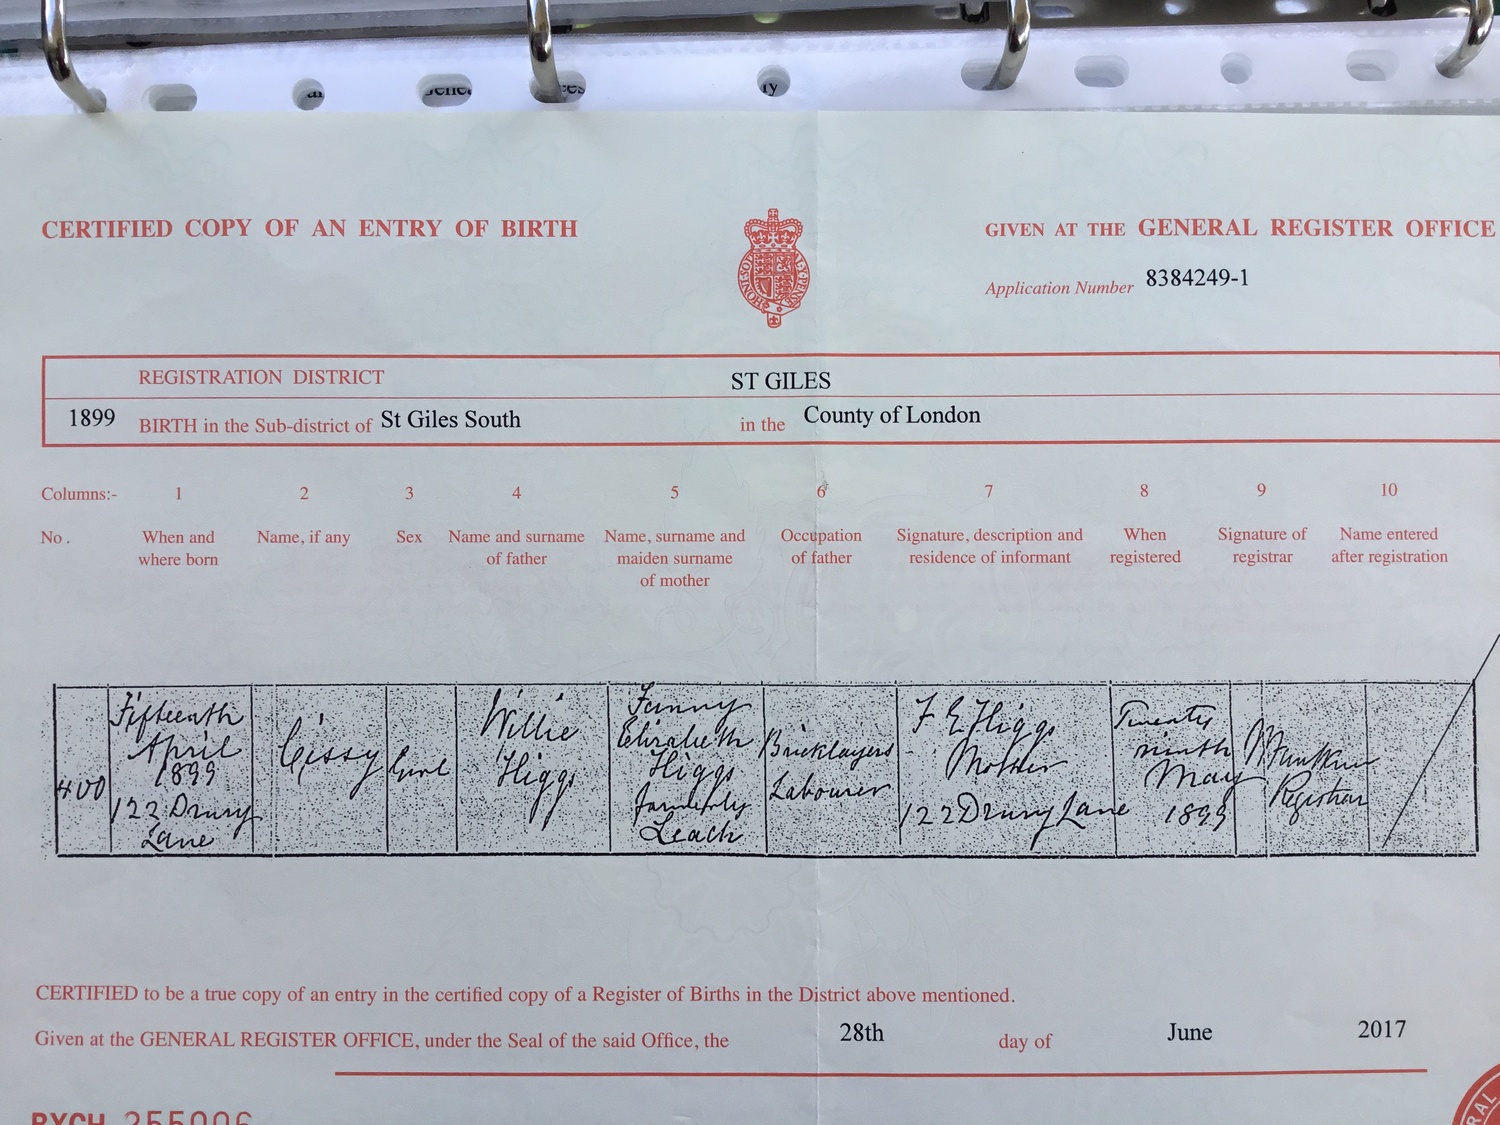 CERTIFIED COPY OF AN ENTRY OF BIRTH
GIVEN AT THE GENERAL REGISTER OFFICE
Application Number 8384249-1
REGISTRATION DISTRICT ST GILES
1899 BIRTH in the Sub-district of St Giles South in the County of London
Columns:- 1 2 3 4 5 6 7 8 9 10
No. When and where born
Name, if any
Sex
Name and surname of father
Name, surname and maiden surname of mother
Occupation of father
Signature, description and residence of informant
When registered
Signature of registrar
Name entered after registration
400
Fifteenth
April
1899
122 Drury
Lane
Cissy
Girl
Willie
Higgs
Fanny
Elizabeth
Higgs
formerly
Leach
Bricklayers
Labourer
F E Higgs
Mother
122 Drury Lane
Twenty
ninth
May
1899
Registrar
CERTIFIED to be a true copy of an entry in the certified copy of a Register of Births in the District above mentioned.
Given at the GENERAL REGISTER OFFICE, under the Seal of the said Office, the 28th day of June 2017